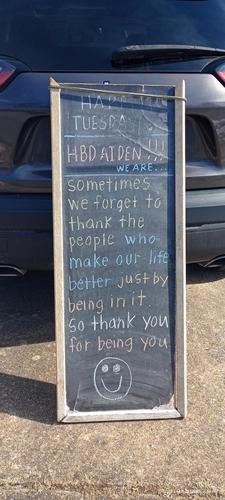 HAPPY
TUESDAY
HBD AIDEN !!!
WE ARE...
sometimes
we forget to
thank the
people who
make our life
better just by
being in it.
so thank you
for being you